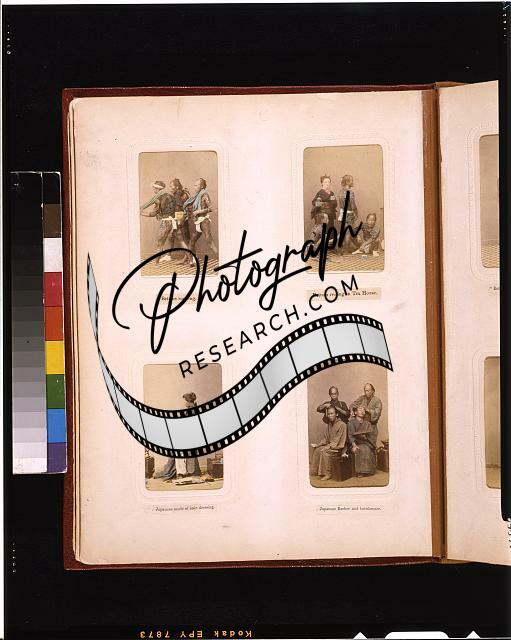 Photograph
RESEARCH.COM
Tea House.
Japanese mode of hair dressing.
Japanese Barber and
Kodak EPY 7873